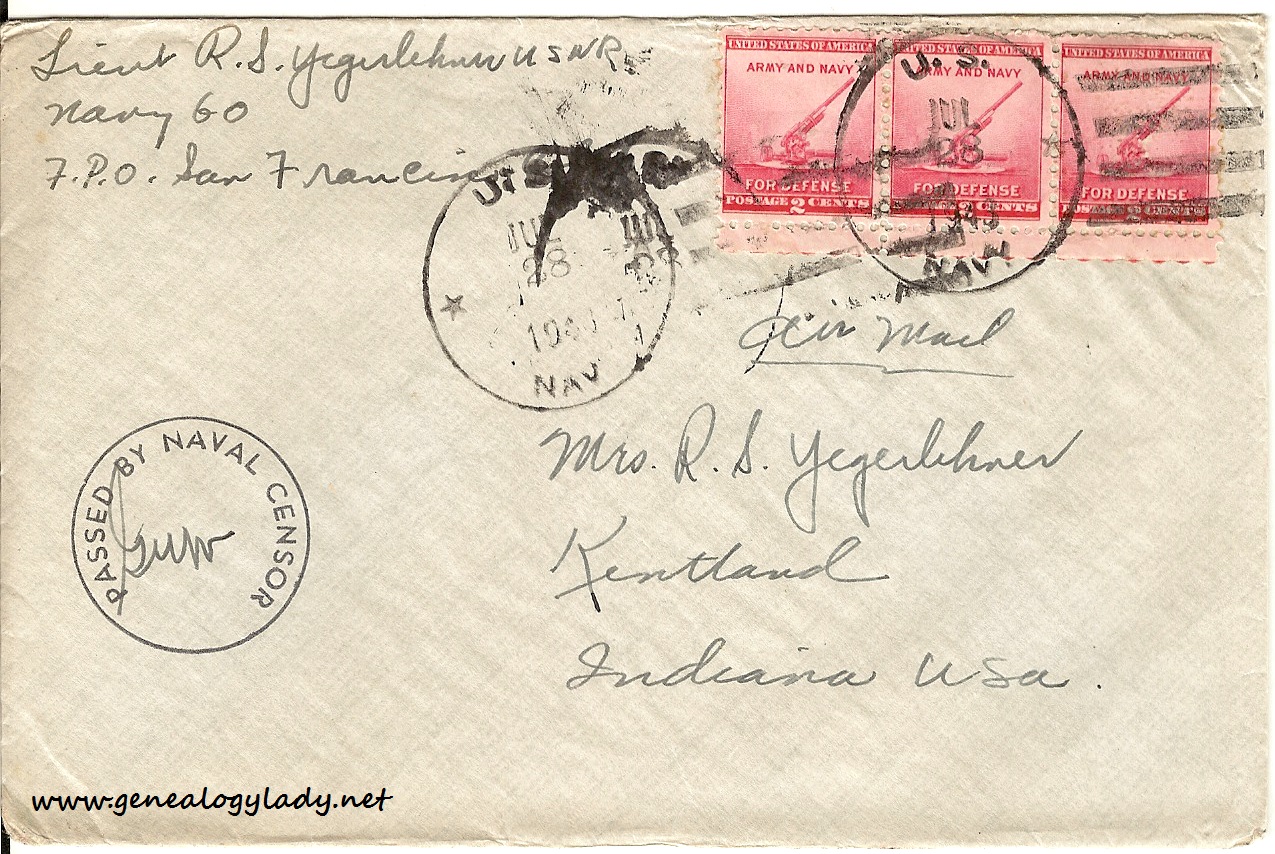 Lieut R. S. Yegerlehner USNR
Navy 60
F.P.O. San Francisco
UNITED STATES OF AMERICA
ARMY AND NAVY
FOR DEFENSE
POSTAGE 2 CENTS
UNITED STATES OF AMERICA
ARMY AND NAVY
FOR DEFENSE
2 CENTS
UNITED STATES OF AMERICA
ARMY AND NAVY
FOR DEFENSE
POSTAGE 2 CENTS
U.S.
JUL
28
1943
NAVY
U.S.
JUL
28
NAV
Air Mail
Mrs. R. S. Yegerlehner
Kentland
Indiana USA.
PASSED BY NAVAL CENSOR
www.genealogylady.net